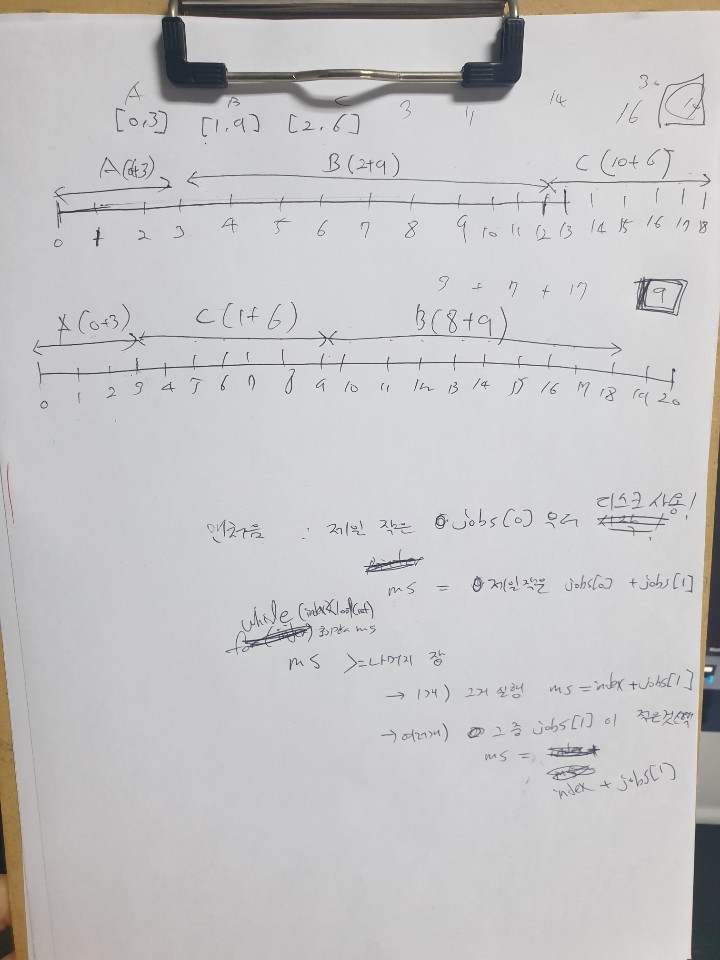 A B C
[0,3] [1,9] [2,6] 3 11 14 16
A(0+3) B(2+9) C(10+6)
0 1 2 3 4 5 6 7 8 9 10 11 12 13 14 15 16 17 18
3 + 7 + 17 9
A(0+3) C(1+6) B(8+9)
0 1 2 3 4 5 6 7 8 9 10 11 12 13 14 15 16 17 18 19 20
맨처음 : 제일 작은 jobs[0] 우선 디스크 사용!
ms = 제일작은 jobs[0] + jobs[1]
while
ms >= 나머지 중
→ 1개) 그거 실행 ms = index + jobs[1]
→ 여러개) 그 중 jobs[1] 이 작은것 선택
ms =
index + jobs[1]